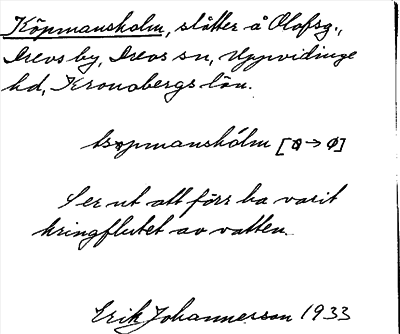 Köpmansholm, slåtter å Olofsg.,
Drevs by, Drevs sn, Uppvidinge
hd, Kronobergs län.
kspmanshólm [ɑ→ø]
Ser ut att förr ha varit
kringflutet av vatten.
Erik Johannesson 1933